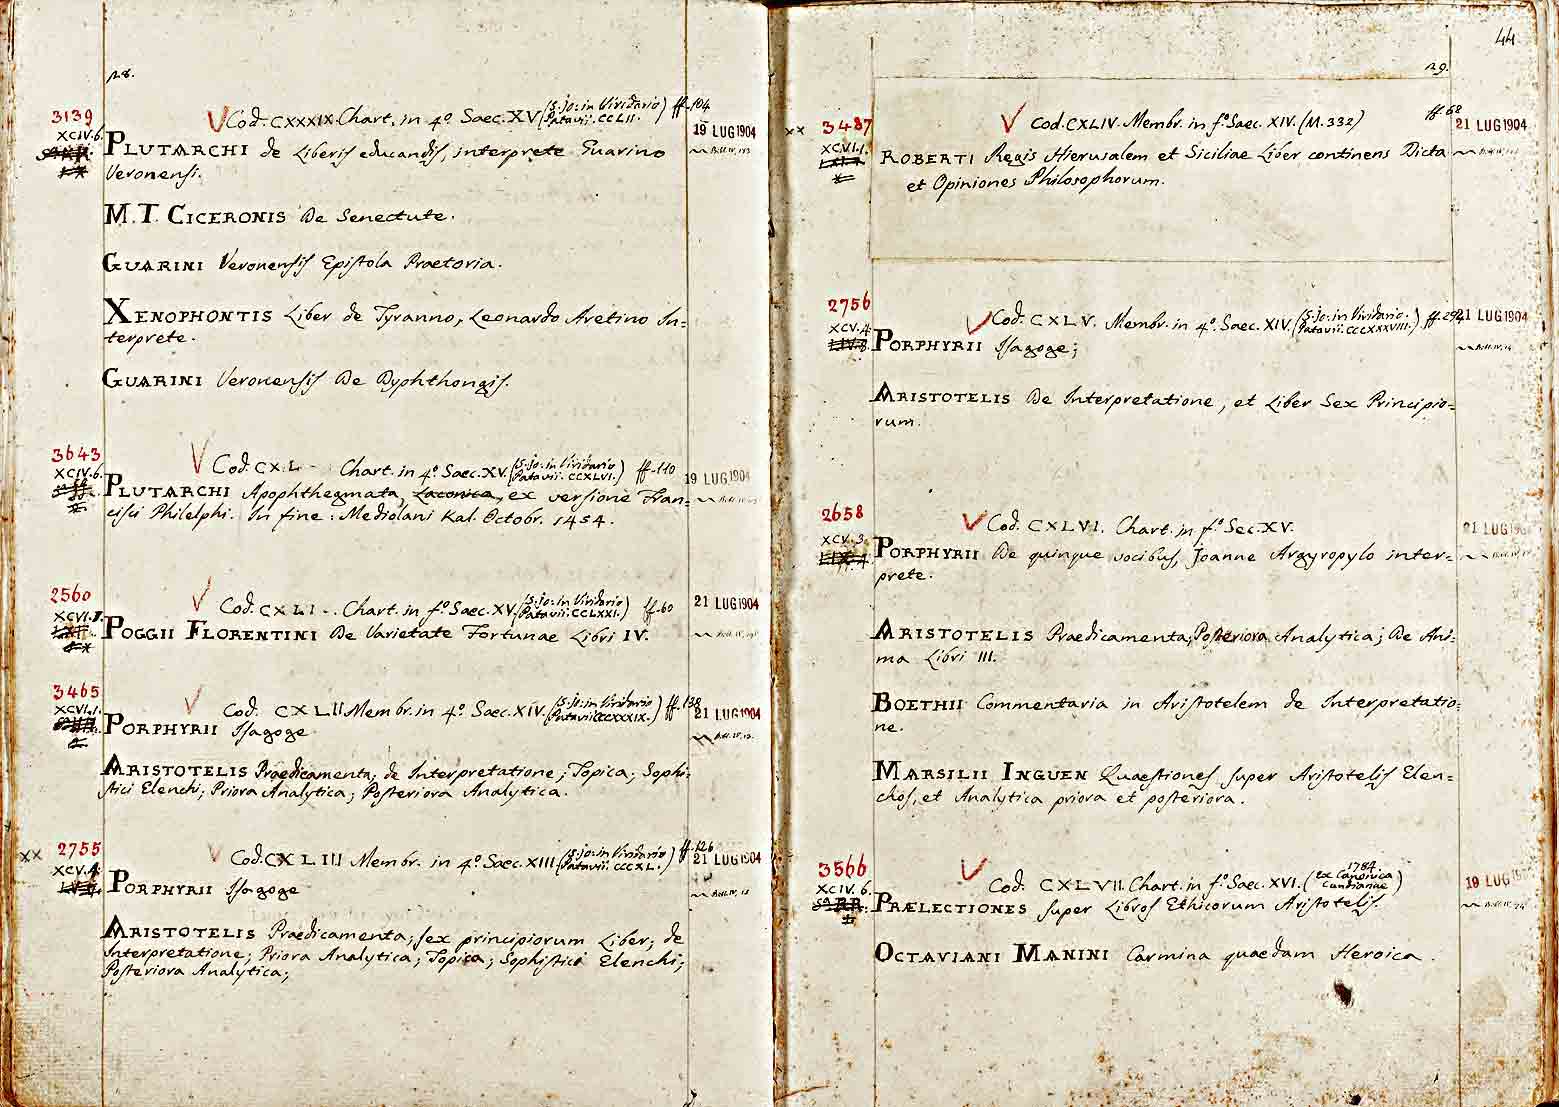 28.
3139
XCIV.6.
Cod. CXXXIX. Chart. in 4º Saec. XV (S. Jo: in Viridario Patavii. CCLII.) ff. 104
19 LUG 1904
PLUTARCHI de Liberis educandis, interprete Guarino
Veronensi.
M. T. CICERONIS De Senectute.
GUARINI Veronensis Epistola Praetoria.
XENOPHONTIS Liber de Tyranno, Leonardo Aretino In=
terprete.
GUARINI Veronensis De Dyphthongis.
3643
XCIV.6.
Cod. CXL Chart. in 4º Saec. XV. (S. Jo: in Viridario Patavii. CCXLVI.) ff. 110
19 LUG 1904
PLUTARCHI Apophthegmata, Laconica, ex versione Fran=
cisci Philelphi. In fine: Mediolani Kal. Octobr. 1454.
2560
XCVI.
Cod. CXLI Chart. in fº Saec. XV. (S. Jo: in Viridario Patavii. CCLXXI.) ff. 60
21 LUG 1904
POGGII FLORENTINI De Varietate Fortunae Libri IV.
3465
XCVI.1.
Cod. CXLII Membr. in 4º Saec. XIV. (S. Jo: in Viridario Patavii CCCXXXIX.) ff. 138
21 LUG 1904
PORPHYRII Isagoge
ARISTOTELIS Praedicamenta; de Interpretatione; Topica; Sophi=
stici Elenchi; Priora Analytica; Posteriora Analytica.
xx 2755
XCV.4.
Cod. CXLIII Membr. in 4º Saec. XIII. (S. Jo: in Viridario Patavii. CCCXL.) ff. 126
21 LUG 1904
PORPHYRII Isagoge
ARISTOTELIS Praedicamenta; sex principiorum Liber; de
Interpretatione; Priora Analytica; Topica; Sophistici Elenchi;
Posteriora Analytica;
44
29.
xx 3487
XCVI.1.
Cod. CXLIV. Membr. in fº Saec. XIV. (M. 332) ff. 68
21 LUG 1904
ROBERTI Regis Hierusalem et Siciliae Liber continens Dicta
et Opiniones Philosophorum.
2756
XCV.4.
Cod. CXLV. Membr. in 4º Saec. XIV. (S. Jo: in Viridario. Patavii. CCCXXXVIII.) ff. 292
21 LUG 1904
PORPHYRII Isagoge;
ARISTOTELIS De Interpretatione, et Liber Sex Principio=
rum.
2658
XCV.3.
Cod. CXLVI. Chart. in fº Sec. XV.
21 LUG
PORPHYRII De quinque vocibus, Joanne Argyropylo inter=
prete.
ARISTOTELIS Praedicamenta; Posteriora Analytica; De Ani=
ma Libri III.
BOETHII Commentaria in Aristotelem de Interpretatio=
ne.
MARSILII INGUEN Quaestiones super Aristotelis Elen=
chos, et Analytica priora et posteriora.
3566
XCIV.6.
Cod. CXLVII. Chart. in fº Saec. XVI. (1784. ex Canonica Candianae)
19 LUG
PRÆLECTIONES super Libros Ethicorum Aristotelis.
OCTAVIANI MANINI Carmina quaedam Heroica.